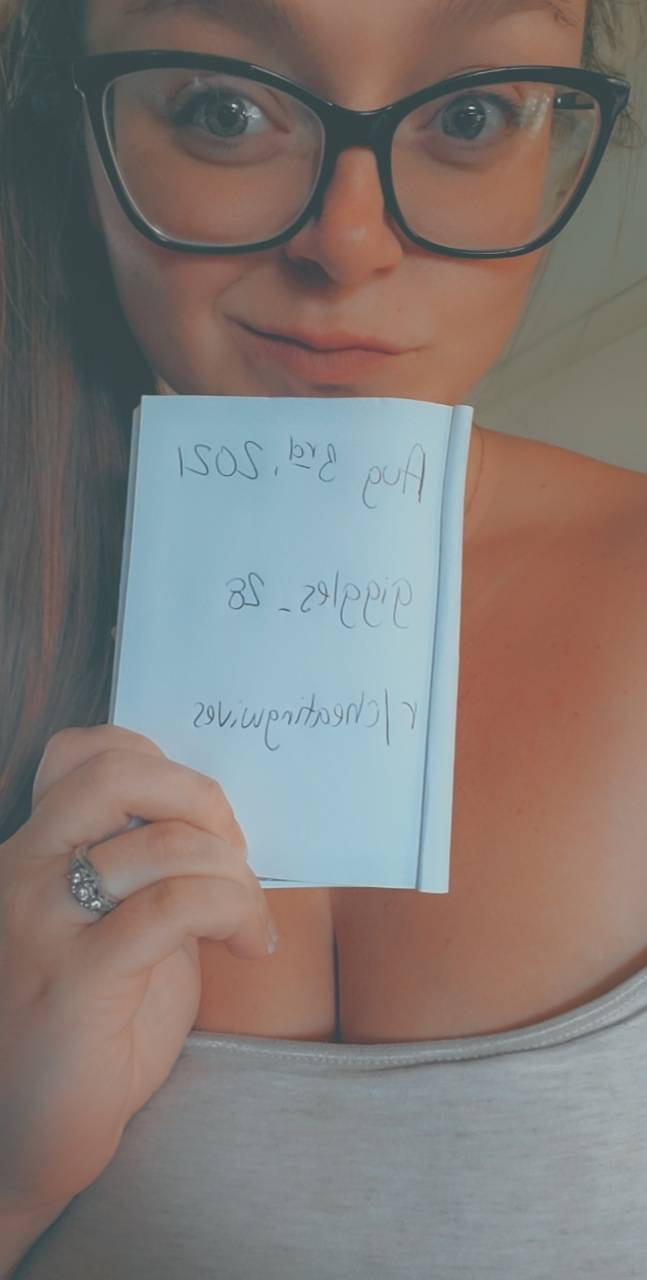 Aug 3rd, 2021
giggles_28
r/cheatingwives